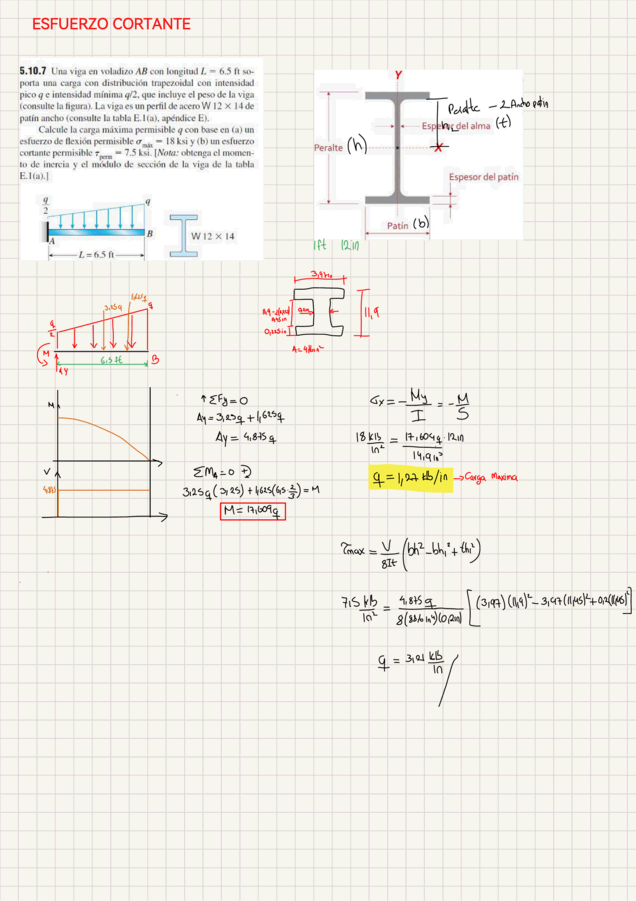 ESFUERZO CORTANTE
5.10.7 Una viga en voladizo AB con longitud L = 6.5 ft so-
porta una carga con distribución trapezoidal con intensidad
pico q e intensidad mínima q/2, que incluye el peso de la viga
(consulte la figura). La viga es un perfil de acero W 12 × 14 de
patín ancho (consulte la tabla E.1(a), apéndice E).
Calcule la carga máxima permisible q con base en (a) un
esfuerzo de flexión permisible σmáx = 18 ksi y (b) un esfuerzo
cortante permisible τperm = 7.5 ksi. [Nota: obtenga el momen-
to de inercia y el módulo de sección de la viga de la tabla
E.1(a).]
q/2
q
A
B
L = 6.5 ft
W 12 × 14
Y
Peralte - 2 Ancho patin
h1
Espesor del alma (t)
Peralte (h)
X
Espesor del patín
Patín (b)
1ft 12in
q/2
3,25q
1,625q
q
M
Ay
6,5 ft
B
11,9
0,225in
M
V
↑ΣFy = 0
Ay = 3,25q + 1,625q
Ay = 4,875q
ΣMA = 0
3,25q(3,25) + 1,625(6,5 2/3) = M
M = 17,609q
σx = - My/I = - M/S
18 klb/in² = 17,609q · 12in / 14,9in³
q = 1,27 klb/in → Carga Maxima
τmax = V/8It (bh² - bh1² + th1²)
7,5 klb/in² = 4,875q / 8(88,6in⁴)(0,2in) [(3,97)(11,9)² - 3,97(11,45)² + 0,2(11,45)²]
q = 3,21 klb/in